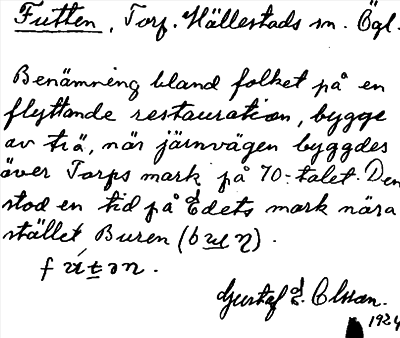 Futten, Torp. Hällestads sn. Ögl.
Benämning bland folket på en
flyttande restauration, bygge
av trä, när järnvägen byggdes
över Torps mark på 70-talet. Den
stod en tid på Edets mark nära
stället Buren
Gustaf Olsson.
1924